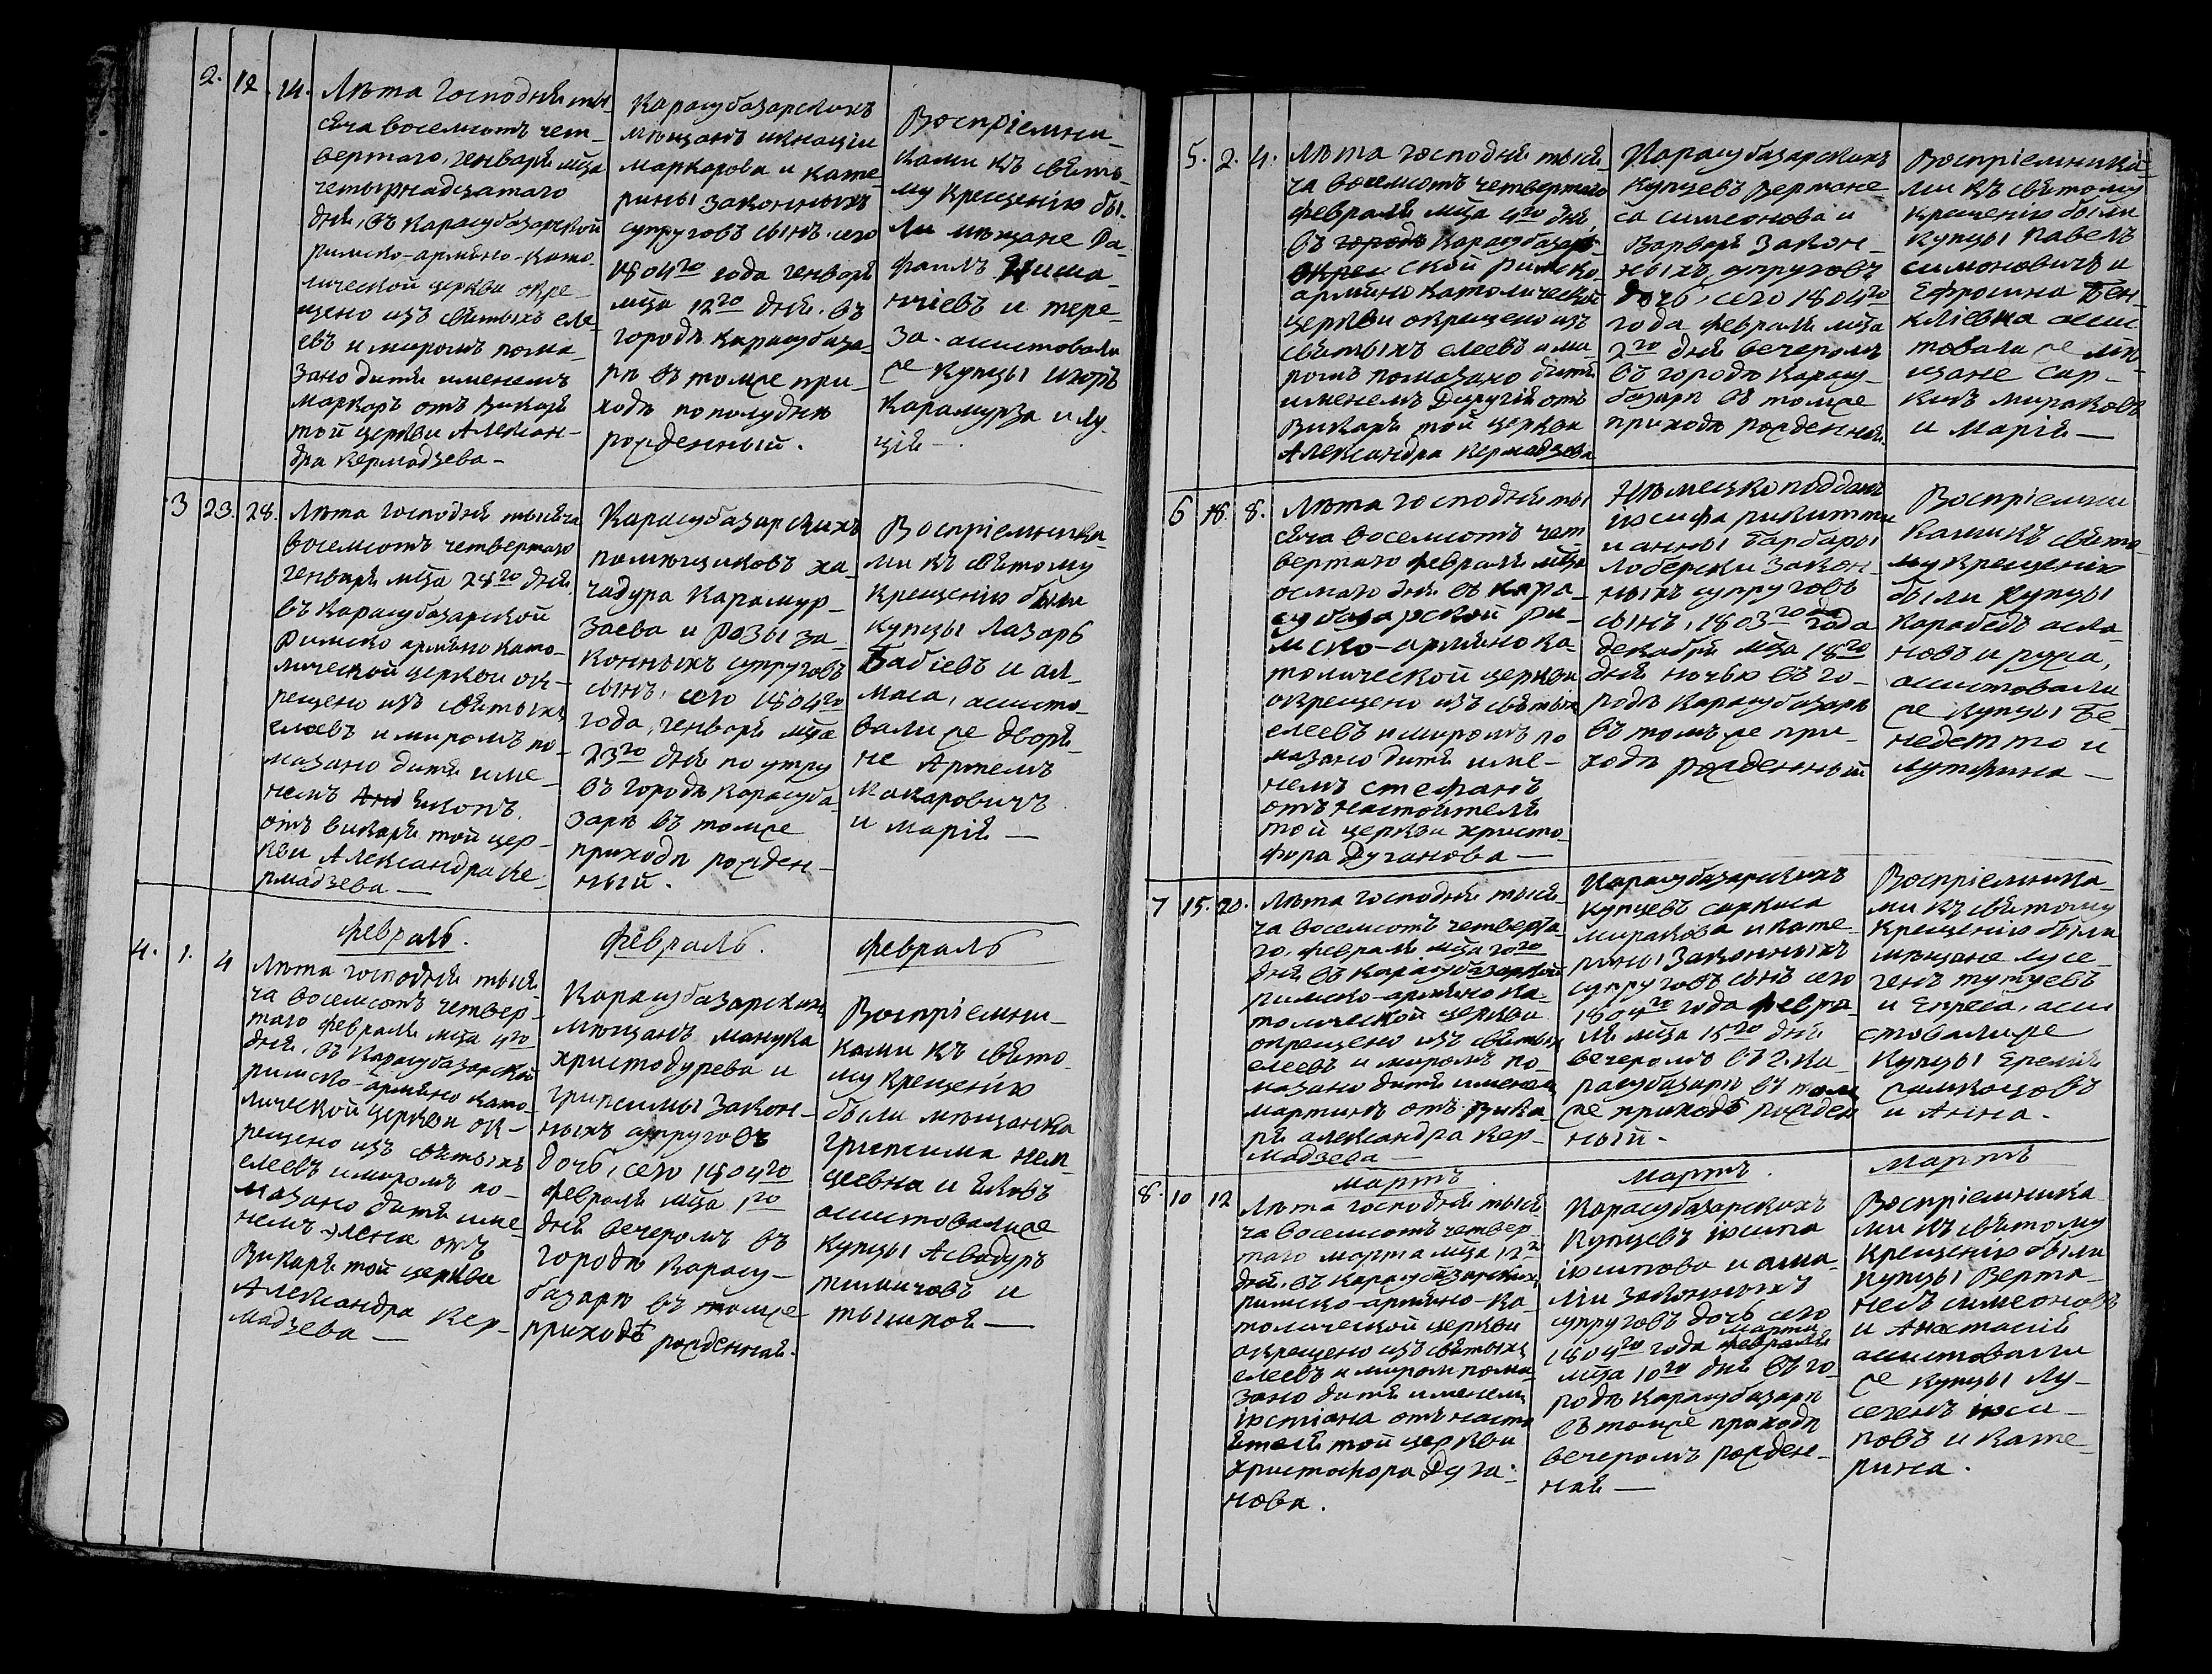 2. 12. 14.
Лѣта Господня ты-
сяча восемсотъ чет-
вертаго, генваря мца
четырнадцатаго
дня, въ Карасубазарской
римско-армяно-като-
лической церкви окре-
щено изъ святыхъ еле-
евъ и миромъ пома-
зано дитя именемъ
Маркаръ отъ викаря
той церкви Алексан-
дра Кермадзева –
Карасубазарскихъ
мѣщанъ
Маркарова и Кате-
рины законныхъ
супруговъ сынъ, сего
1804го года генваря
мца 12го дня, въ
городѣ Карасубаза-
рѣ въ томже при-
ходѣ пополудню
рожденный.
Воспріемни-
ками къ свято-
му крещенію бы-
ли мѣщане Ра-
фаилъ
и Тере-
за. асистовали
же купцы
Карамурза и Лу-
ція –
3 23. 28.
Лѣта господня тысяча
восемсотъ четвертаго
генваря мца 28го дня
въ Карасубазарской
Римско армяно като-
лической церкви ок-
рещено изъ святыхъ
елеевъ и миромъ по-
мазано дитя име-
немъ
отъ викаря той цер-
кви Александра Ке-
рмадзева –
Карасубазарскихъ
помѣщиковъ Ха-
чадура Карамур-
заева и Розы за-
конныхъ супруговъ
сынъ, сего 1804го
года, генваря мца
23го дня по утру
въ городѣ Карасуба-
зарѣ въ томже
приходѣ рожден-
ный.
Воспріемника-
ми къ святому
крещенію были
купцы Лазарь
Бабіевъ и Ал-
маса, асисто-
вали же дворя-
не Артемъ
Макаровичъ
и Марія –
февраль. февраль. февраль
4. 1. 4
Лѣта господня тыся-
ча восемсотъ четвер-
таго февраля мца 4го
дня, въ Карасубазарской
римско-армяно като-
лической церкви ок-
рещено изъ святыхъ
елеевъ и миромъ по-
мазано дитя име-
немъ Элена отъ
Викаря той церкви
Александра Кер-
мадзева –
Карасубазарскихъ
мѣщанъ Манука
Христодурева и
Грипсимы закон-
ныхъ супруговъ
дочь, сего 1804го
февраля мца 1го
дня вечеромъ въ
городѣ Карасу-
базарѣ въ томже
приходѣ рожденная.
Воспріемни-
ками къ свято-
му крещенію
были мѣщанка
Грипсима Нем-
цевна и Яковъ
асистовалиже
купцы Асвадуръ
и
–
5. 2. 4.
Лѣта господня тыся-
ча восемсотъ четвертаго
февраля мца 4го дня,
въ городѣ Карасубазар-
ской римско
армяно католической
церкви окрещено изъ
святыхъ елеевъ и ми-
ромъ помазано дитя
именемъ отъ
Викаря той церкви
Александра Кермадзева
Карасубазарскихъ
купцевъ Вертане-
са Симеонова и
Варвары закон-
ныхъ супруговъ
дочь, сего 1804го
года февраля мца
2го дня вечеромъ
въ городѣ Карасу-
базарѣ въ томже
приходѣ рожденная.
Воспріемника-
ми къ святому
крещенію были
купцы Павелъ
Симоновичъ и
Ефросина
асис-
товали же мѣ-
щане Сар-
кизъ Мираковъ
и Марія –
6 18. 8.
Лѣта господня ты-
сяча восемсотъ чет-
вертаго февраля мца
осмаго дня въ кара-
субазарской ри-
мско-армяно ка-
толической церкви
окрещено изъ святыхъ
елеевъ и миромъ по-
мазано дитя име-
немъ Стефанъ
отъ настоятеля
той церкви Христо-
фора Дуганова –
Нѣмецкоподданъ
Іосифа
и Анны Барбары
закон-
ныхъ супруговъ
сынъ, 1803го года
декабря мца 18го
дня ночью въ го-
родѣ Карасубазарѣ
въ томъ же при-
ходѣ рожденный
Воспріемни-
ками къ свято-
му крещенію
были купцы
Карабедъ Асла-
новъ и
асистовали
же купцы Бе-
недетто и
–
7 15. 20.
Лѣта господня тыся-
ча восемсотъ четверта-
го, февраля мца 20го
дня въ Карасубазарской
римско-армяно ка-
толической церкви
окрещено изъ святыхъ
елеевъ и миромъ по-
мазано дитя именемъ
Мартинъ отъ Вика-
рія Александра Кер-
мадзева –
Карасубазарскихъ
купцевъ Саркиса
Миракова и Кате-
рины законныхъ
супруговъ сынъ сего
1804го года февра-
ля мца 15го дня
вечеромъ въ г. Ка-
расубазарѣ въ том
же приходѣ рожден
ный.
Воспріемника-
ми къ святому
крещенію были
мѣщане Лусе-
генъ Тутуевъ
и аси-
стовалиже
купцы Еремія
и Анна.
мартъ мартъ. мартъ
8. 10 12
Лѣта господня тыся-
ча восемсотъ четвер-
таго марта мца 12го
дня, въ Карасубазарской
римско-армяно-ка-
толической церкви
окрещено изъ святыхъ
елеевъ и миром пома-
зано дитя именемъ
отъ насто-
ятеля той церкви
Христофора Дуга-
нова.
Карасубазарскихъ
купцевъ
и Ама-
ліи законныхъ
супруговъ дочь сего
марта
1804го года февраля
мца 10го дня въ го-
родѣ Карасубазарѣ
въ томже приходѣ
вечеромъ рожден-
ная –
Воспріемника-
ми къ святому
крещенію были
купцы Верта-
несъ Симеоновъ
и Анастасія
асистовали
же купцы Лу-
сегенъ
и Кате-
рина.